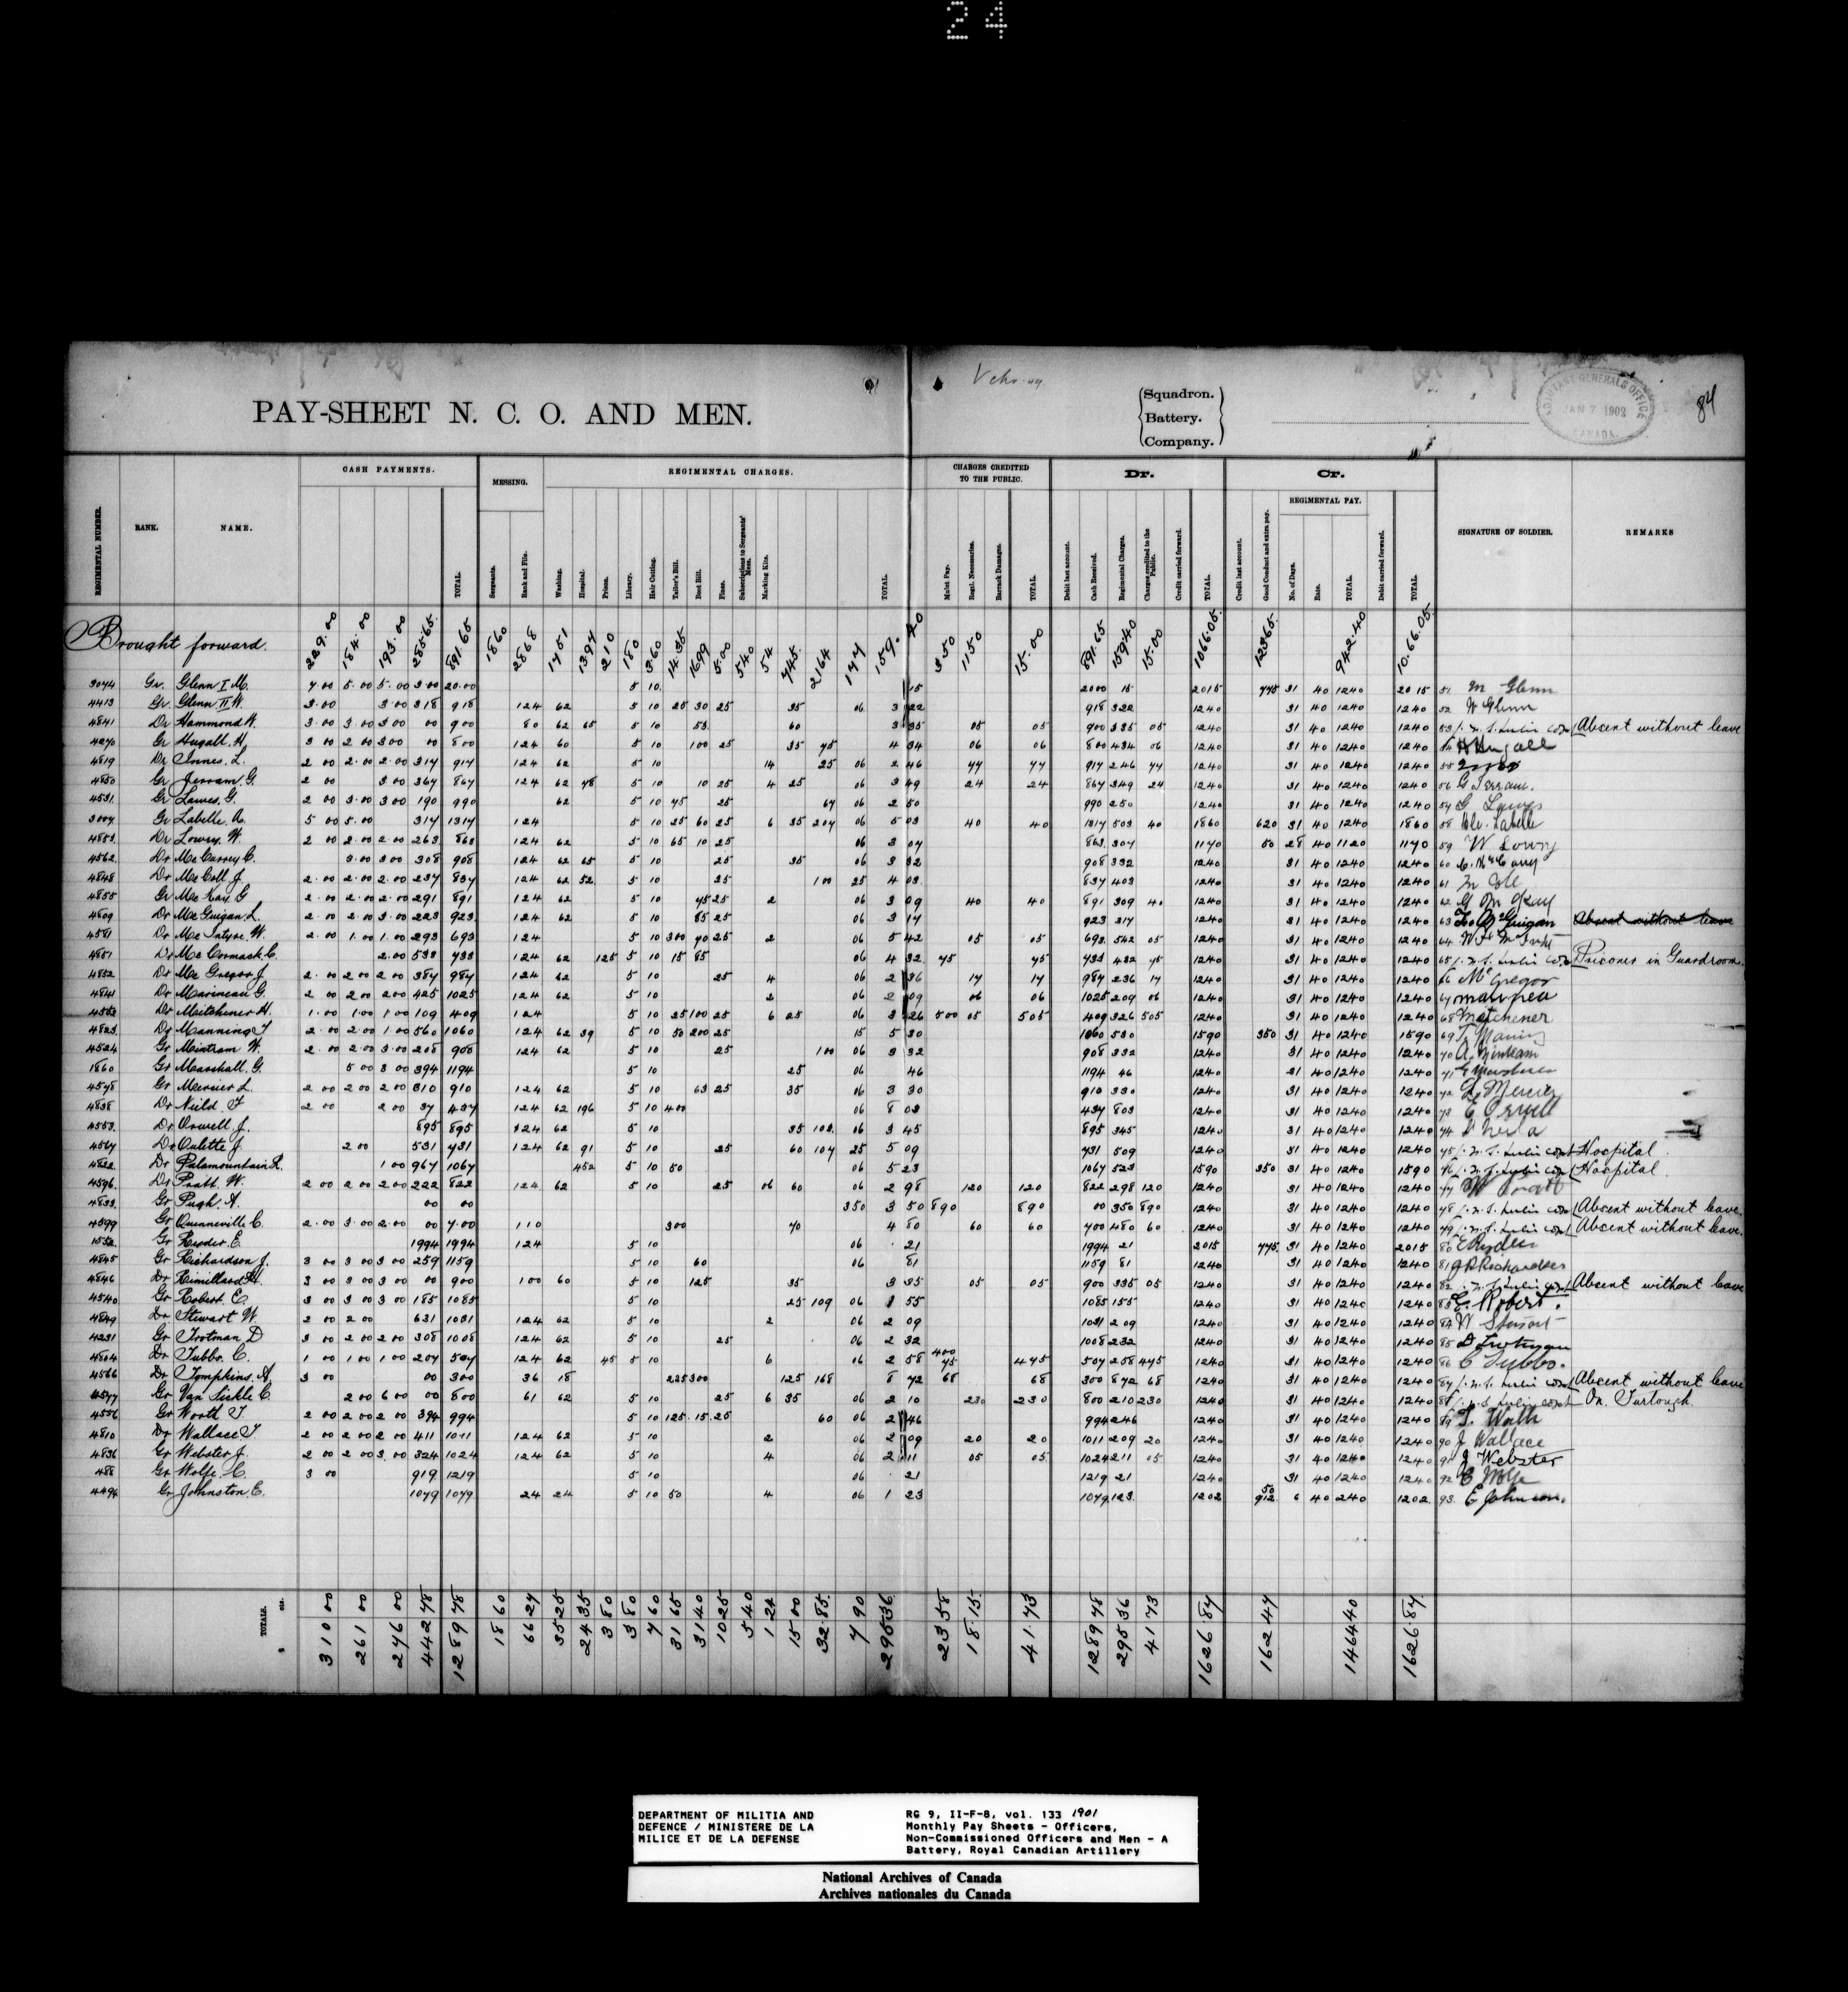 24
84
PAY-SHEET N. C. O. AND MEN.
Squadron.
Battery.
Company.
ADJUTANT GENERAL'S OFFICE
JAN 7 1902
CANADA.
REGIMENTAL NUMBER. RANK. NAME. CASH PAYMENTS. TOTAL. MESSING. Sergeants. Rank and File. REGIMENTAL CHARGES. Washing. Hospital. Prison. Library. Hair Cutting. Tailor's Bill. Boot Bill. Fines. Subscriptions to Sergeants' Mess. Marking Kits. TOTAL.
CHARGES CREDITED TO THE PUBLIC. Mulct Pay. Regl. Necessaries. Barrack Damages. TOTAL. Dr. Debit last account. Cash Received. Regimental Charges. Charges credited to the Public. Credit carried forward. TOTAL. Cr. Credit last account. Good Conduct and extra pay. REGIMENTAL PAY. No. of Days. Rate. TOTAL. Debit carried forward. TOTAL. SIGNATURE OF SOLDIER. REMARKS
Brought forward. 229.00 184.00 193.00 285 65 891.65 18 60 28 68 17 51 13 97 2 10 1 80 3.60 14.35 16 99 5.00 5 40 54 7 45 21 64 1 77 159.40 3 50 11 50 15.00 891.65 159 40 15.00 1066.05 123 65 942.40 10.66.05
Gr. Glenn I M. 7.00 5.00 5.00 3.00 20.00 5 10 15 2000 15 2015 775 31 40 1240 2015 51 M Glenn
4413 Gr. Glenn II W. 3.00 3.00 318 918 124 62 5 10 25 30 25 35 06 3 22 918 322 1240 31 40 1240 1240 52 W Glenn
4841 Dr Hammond W. 3.00 3.00 3.00 00 900 80 62 65 5 10 53 60 3 35 05 05 900 335 05 1240 31 40 1240 1240 53 Absent without leave
4270 Gr Hugall. H. 3 00 2 00 3 00 00 800 124 60 5 10 100 25 35 75 4 34 06 06 800 434 06 1240 31 40 1240 1240 54 H Hugall
4819 Dr Innes. L. 2 00 2.00 2.00 317 917 124 62 5 10 14 25 06 2 46 77 77 917 246 77 1240 31 40 1240 1240 55
4850 Gr Jerram. G. 2 00 3 00 367 867 124 62 78 5 10 10 25 4 25 06 3 49 24 24 867 349 24 1240 31 40 1240 1240 56 G Jerram.
4531 Gr Lawes. G. 2 00 3.00 3 00 190 990 62 5 10 75 25 67 06 2 50 990 250 1240 31 40 1240 1240 57 G Lawes
Gr Labelle. A. 5 00 5.00 317 1317 124 5 10 25 60 25 6 35 207 06 5 03 40 40 1317 503 40 1860 620 31 40 1240 1860 58 Labelle
4853 Dr Lowry. W. 2 00 2.00 2.00 263 863 124 62 5 10 65 10 25 06 3 07 863 307 1170 50 28 40 1120 1170 59 W Lowry
4562 Dr McCurry C. 3.00 3 00 308 908 124 62 65 5 10 25 35 06 3 32 908 332 1240 31 40 1240 1240 60
4848 Dr McColl J. 2.00 2.00 2.00 237 837 124 62 52 5 10 25 1 00 25 4 03 837 403 1240 31 40 1240 1240 61
4855 Gr McKay G 2.00 2.00 2.00 291 891 124 62 5 10 75 25 2 06 3 09 40 40 891 309 40 1240 31 40 1240 1240 62 G McKay
4809 Dr McGuigan. L. 2 00 2.00 3.00 223 923 124 62 5 10 85 25 06 3 17 923 317 1240 31 40 1240 1240 63 McGuigan Absent without leave
4581 Dr McIntyre W. 2.00 1.00 1.00 293 693 124 5 10 300 70 25 2 06 5 42 05 05 693 542 05 1240 31 40 1240 1240 64
4851 Dr McCormack. C. 2.00 533 733 124 62 125 5 10 15 85 06 4 32 75 75 733 432 75 1240 31 40 1240 1240 65 Prisoner in Guardroom.
4852 Dr McGregor J. 2.00 2.00 2 00 387 987 124 62 5 10 25 4 06 2 36 17 17 987 236 17 1240 31 40 1240 1240 66 McGregor
Dr Marineau G. 2 00 2 00 2 00 425 1025 124 62 5 10 2 06 2 09 06 06 1025 209 06 1240 31 40 1240 1240 67
Dr Mitchener H. 1.00 1.00 1 00 109 409 124 5 10 25 100 25 6 25 06 3 26 500 05 505 409 326 505 1240 31 40 1240 1240 68 Mitchener
4823 Dr Manning J 2.00 2.00 1.00 560 1060 124 62 39 5 10 50 200 25 15 5 30 1060 530 1590 350 31 40 1240 1590 69 Manning
4524 Gr Mintram W. 2.00 2.00 3.00 208 908 124 62 5 10 25 100 06 3 32 908 332 1240 31 40 1240 1240 70 Mintram
1860 Gr Marshall. G. 5 00 3 00 394 1194 5 10 25 06 46 1194 46 1240 31 40 1240 1240 71
4578 Gr Mercier L. 2 00 2 00 2 00 310 910 124 62 5 10 63 25 35 06 3 30 910 330 1240 31 40 1240 1240 72 L. Mercier
4838 Dr Nield. J 2 00 2 00 37 437 124 62 196 5 10 400 06 8 03 437 803 1240 31 40 1240 1240 73 E Orwell
4553 Dr Orwell. J. 895 895 124 62 5 10 35 103 06 3 45 895 345 1240 31 40 1240 1240 74
4567 Dr Oulette J. 2 00 531 731 124 62 91 5 10 25 60 107 25 5 09 731 509 1240 31 40 1240 1240 75 Hospital
4822 Dr Palamountain R. 1 00 967 1067 452 5 10 50 06 5 23 1067 523 1590 350 31 40 1240 1590 76 Hospital
4596 Dr Pratt. W. 2 00 2 00 2 00 222 822 124 62 5 10 25 06 60 06 2 98 120 120 822 298 120 1240 31 40 1240 1240 77 W Pratt
4833 Gr Pugh. A. 00 00 350 3 50 890 890 00 350 890 1240 31 40 1240 1240 78 Absent without leave.
4599 Gr Quenneville C. 2.00 3.00 2.00 00 7.00 110 300 70 4 80 60 60 700 480 60 1240 31 40 1240 1240 79 Absent without leave.
1552 Gr Reeder. E. 1994 1994 124 5 10 06 21 1994 21 2015 775 31 40 1240 2015 80
4845 Gr Richardson J. 3 00 3 00 3 00 259 1159 5 10 60 06 81 1159 81 1240 31 40 1240 1240 81 Richardson
4846 Dr Rimillard H. 3 00 3 00 3 00 00 900 100 60 5 10 125 35 3 35 05 05 900 335 05 1240 31 40 1240 1240 82 Absent without leave
4540 Gr Robert. E. 3 00 3 00 3 00 185 1085 5 10 25 109 06 1 55 1085 155 1240 31 40 1240 1240 83 E. Robert.
4849 Dr Stewart W. 2 00 2 00 631 1031 124 62 5 10 2 06 2 09 1031 209 1240 31 40 1240 1240 84 W Stewart
4231 Gr Trotman D 3 00 2 00 2 00 308 1008 124 62 5 10 25 06 2 32 1008 232 1240 31 40 1240 1240 85 D Trotman
4804 Dr Tubbs. C. 1 00 1 00 1 00 207 507 124 62 45 5 10 6 06 2 58 400 75 475 507 258 475 1240 31 40 1240 1240 86 C Tubbs.
4566 Dr Tompkins. A 3 00 00 300 36 18 225 300 125 168 8 72 68 68 300 872 68 1240 31 40 1240 1240 87 Absent without leave
4577 Gr Van Sickle C 2 00 6 00 00 800 61 62 5 10 25 6 35 06 2 10 230 230 800 210 230 1240 31 40 1240 1240 88 On Furlough.
4556 Gr Worth J. 2 00 2 00 2 00 394 994 5 10 125 15 25 60 06 2 46 994 246 1240 31 40 1240 1240 89
4810 Dr Wallace J 2 00 2 00 2 00 411 1011 124 62 5 10 2 06 2 09 20 20 1011 209 20 1240 31 40 1240 1240 90 J Wallace
4836 Gr Webster J. 2 00 2 00 3.00 324 1024 124 62 5 10 4 06 2 11 05 05 1024 211 05 1240 31 40 1240 1240 91 J Webster
488 Gr Wolfe. C. 3 00 919 1219 5 10 06 21 1219 21 1240 31 40 1240 1240 92 C Wolfe
4494 Gr Johnston. E. 1079 1079 24 24 5 10 50 4 06 1 23 1079 123 1202 50 912 6 40 240 1202 93 E Johnson.
TOTALS. 310 00 261 00 276 00 442 78 1289 78 18 60 66 27 35 25 24 35 3 80 3 80 7 60 31 65 31 40 10 25 5 40 1 24 15 00 32.85 7 90 295 36 23 58 18.15 41.73 1289 78 295 36 41 73 1626 87 162 47 1464 40 1626 87
DEPARTMENT OF MILITIA AND
DEFENCE / MINISTERE DE LA
MILICE ET DE LA DEFENSE
RG 9, II-F-8, vol. 133 1901
Monthly Pay Sheets - Officers,
Non-Commissioned Officers and Men - A
Battery, Royal Canadian Artillery
National Archives of Canada
Archives nationales du Canada